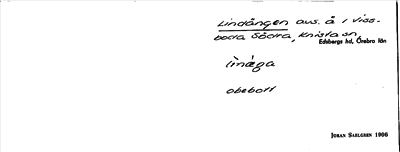 Lindängen avs. å i Viss-
boda Södra, Knista sn,
Edsbergs hd, Örebro län
obebott
JOHAN SAHLGREN 1906